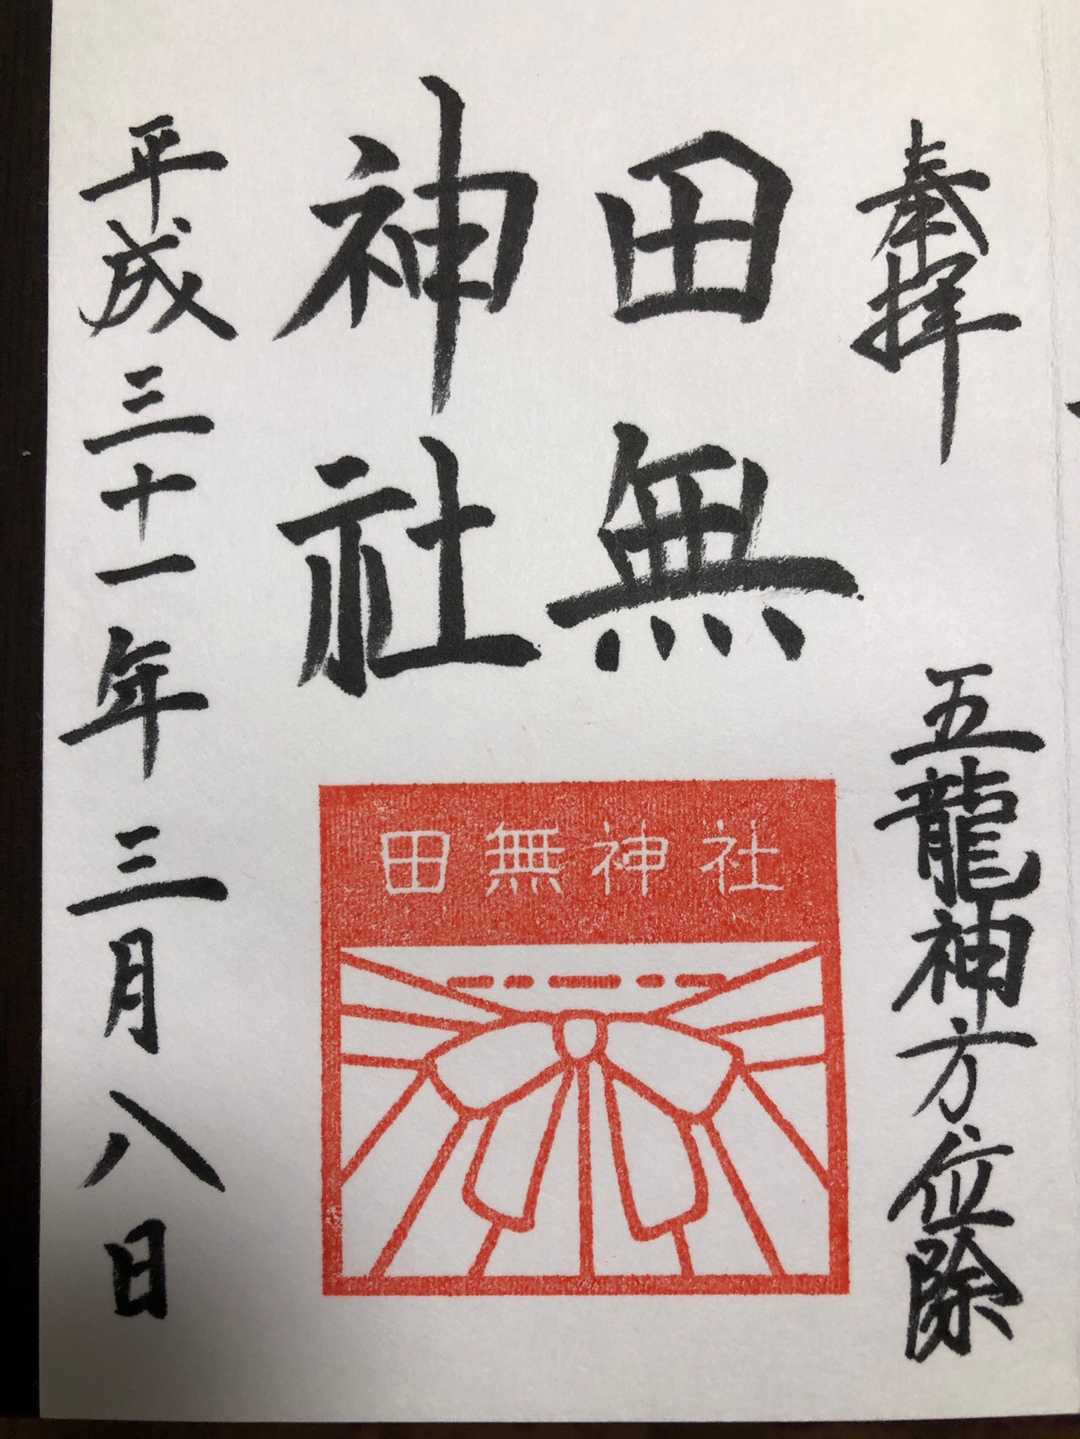 奉拝
五龍神方位除
田無
神社
田無神社
平成三十一年三月八日